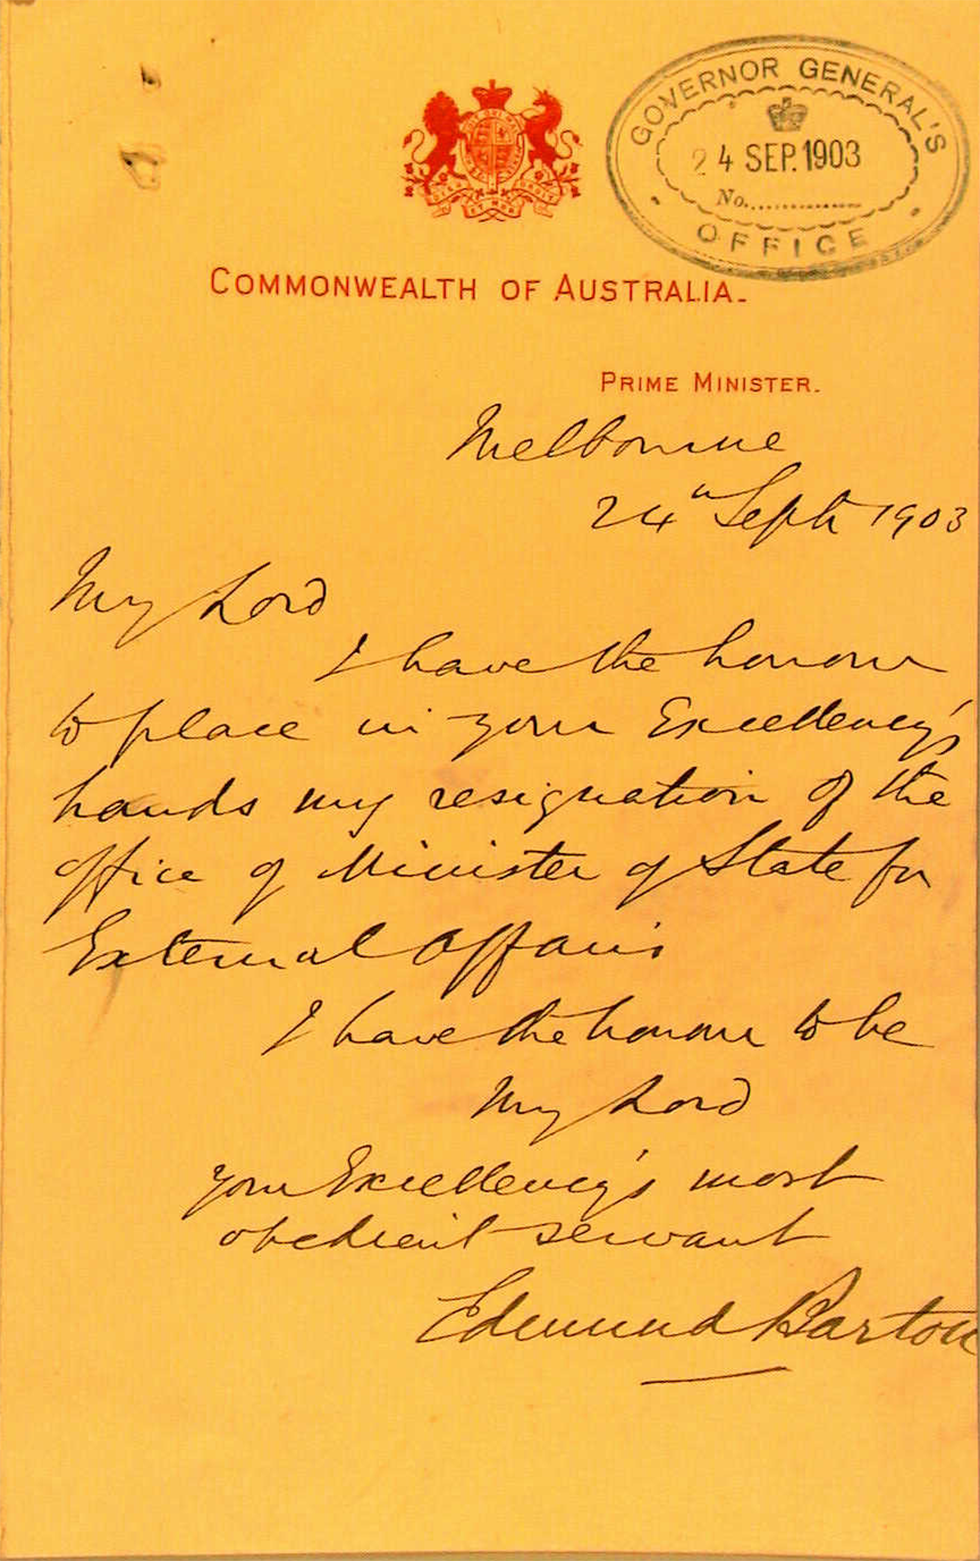 GOVERNOR GENERAL'S
24 SEP. 1903
No.
OFFICE
COMMONWEALTH OF AUSTRALIA.
PRIME MINISTER.
Melbourne
24th Sept 1903
My Lord
I have the honour
to place in your Excellency's
hands my resignation of the
office of Minister of State for
External Affairs
I have the honour to be
My Lord
your Excellency's most
obedient servant
Edmund Barton